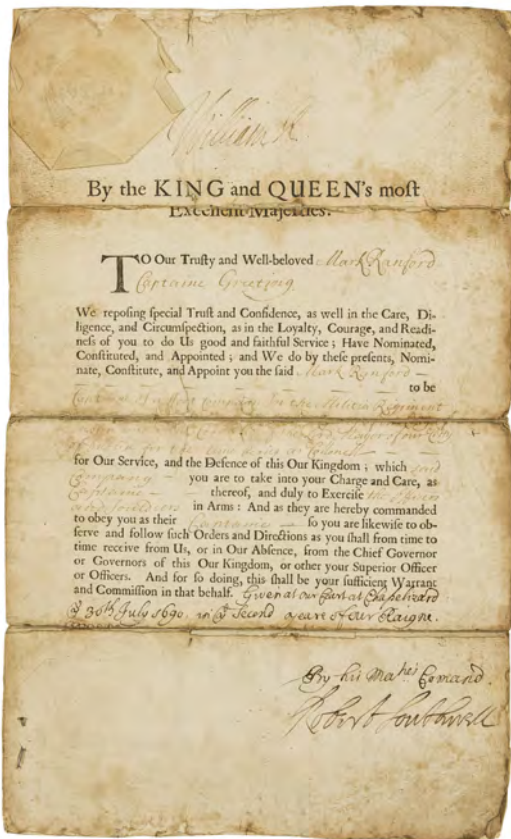 William R
By the KING and QUEEN's most
Excellent Majesties.
TO Our Trusty and Well-beloved Mark Ranford
Captaine Greeting
We reposing special Trust and Confidence, as well in the Care, Di-
ligence, and Circumspection, as in the Loyalty, Courage, and Readi-
ness of you to do Us good and faithful Service; Have Nominated,
Constituted, and Appointed; and We do by these presents, Nomi-
nate, Constitute, and Appoint you the said Mark Ranford —
to be
Captaine of a foot company in the Militia Regiment
for Our Service, and the Defence of this Our Kingdom; which said
Company — you are to take into your Charge and Care, as
Captaine — thereof, and duly to Exercise the Officers
and Soldiers in Arms: And as they are hereby commanded
to obey you as their Captaine — so you are likewise to ob-
serve and follow such Orders and Directions as you shall from time to
time receive from Us, or in Our Absence, from the Chief Governor
or Governors of this Our Kingdom, or other your Superior Officer
or Officers. And for so doing, this shall be your sufficient Warrant
and Commission in that behalf. Given at our Court at Chapelizard
ye 30th July 1690. in ye Second yeare of our Raigne.
By his Matys Comand.
Robert Southwell